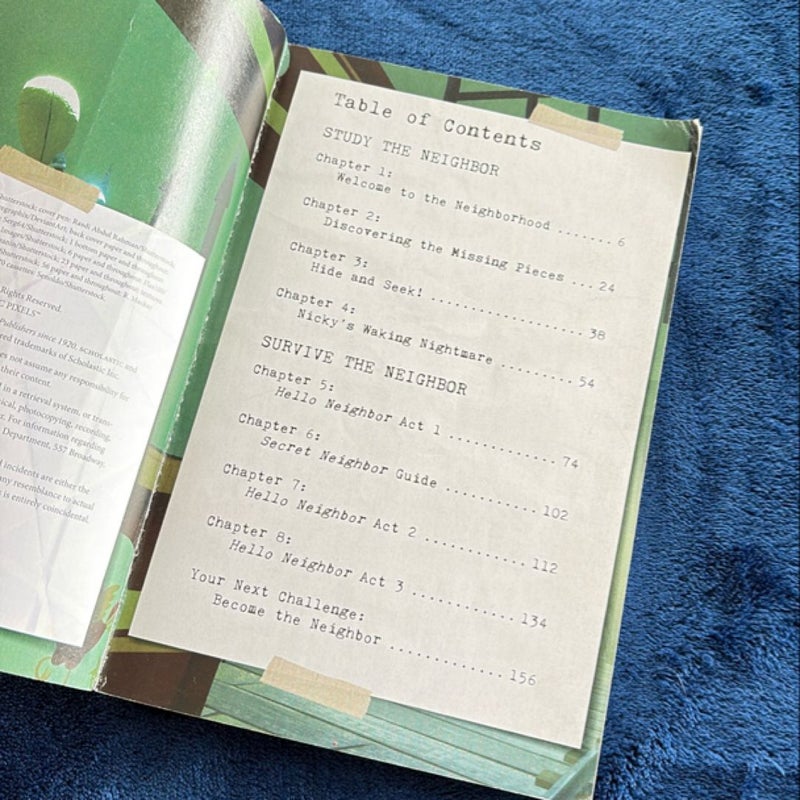 Shutterstock; cover pen: Randi Abdul Rahman/Shutterstock;
back cover paper and throughout:
Serg64/Shutterstock; 1 bottom paper and throughout:
6 paper and throughout:
23 paper and throughout:
Shutterstock; 56 paper and throughout: R. Mackay
70 cassettes: Shutterstock.
Rights Reserved.
© PIXELS™
Publishers since 1920. SCHOLASTIC and
red trademarks of Scholastic Inc.
does not assume any responsibility for
their content.
in a retrieval system, or trans-
photocopying, recording,
For information regarding
Department, 557 Broadway,
incidents are either the
any resemblance to actual
is entirely coincidental.
Table of Contents
STUDY THE NEIGHBOR
Chapter 1:
Welcome to the Neighborhood ....... 6
Chapter 2:
Discovering the Missing Pieces ... 24
Chapter 3:
Hide and Seek! ................ 38
Chapter 4:
Nicky's Waking Nightmare ......... 54
SURVIVE THE NEIGHBOR
Chapter 5:
Hello Neighbor Act 1 ............ 74
Chapter 6:
Secret Neighbor Guide ........... 102
Chapter 7:
Hello Neighbor Act 2 ............ 112
Chapter 8:
Hello Neighbor Act 3 ............ 134
Your Next Challenge:
Become the Neighbor ............. 156